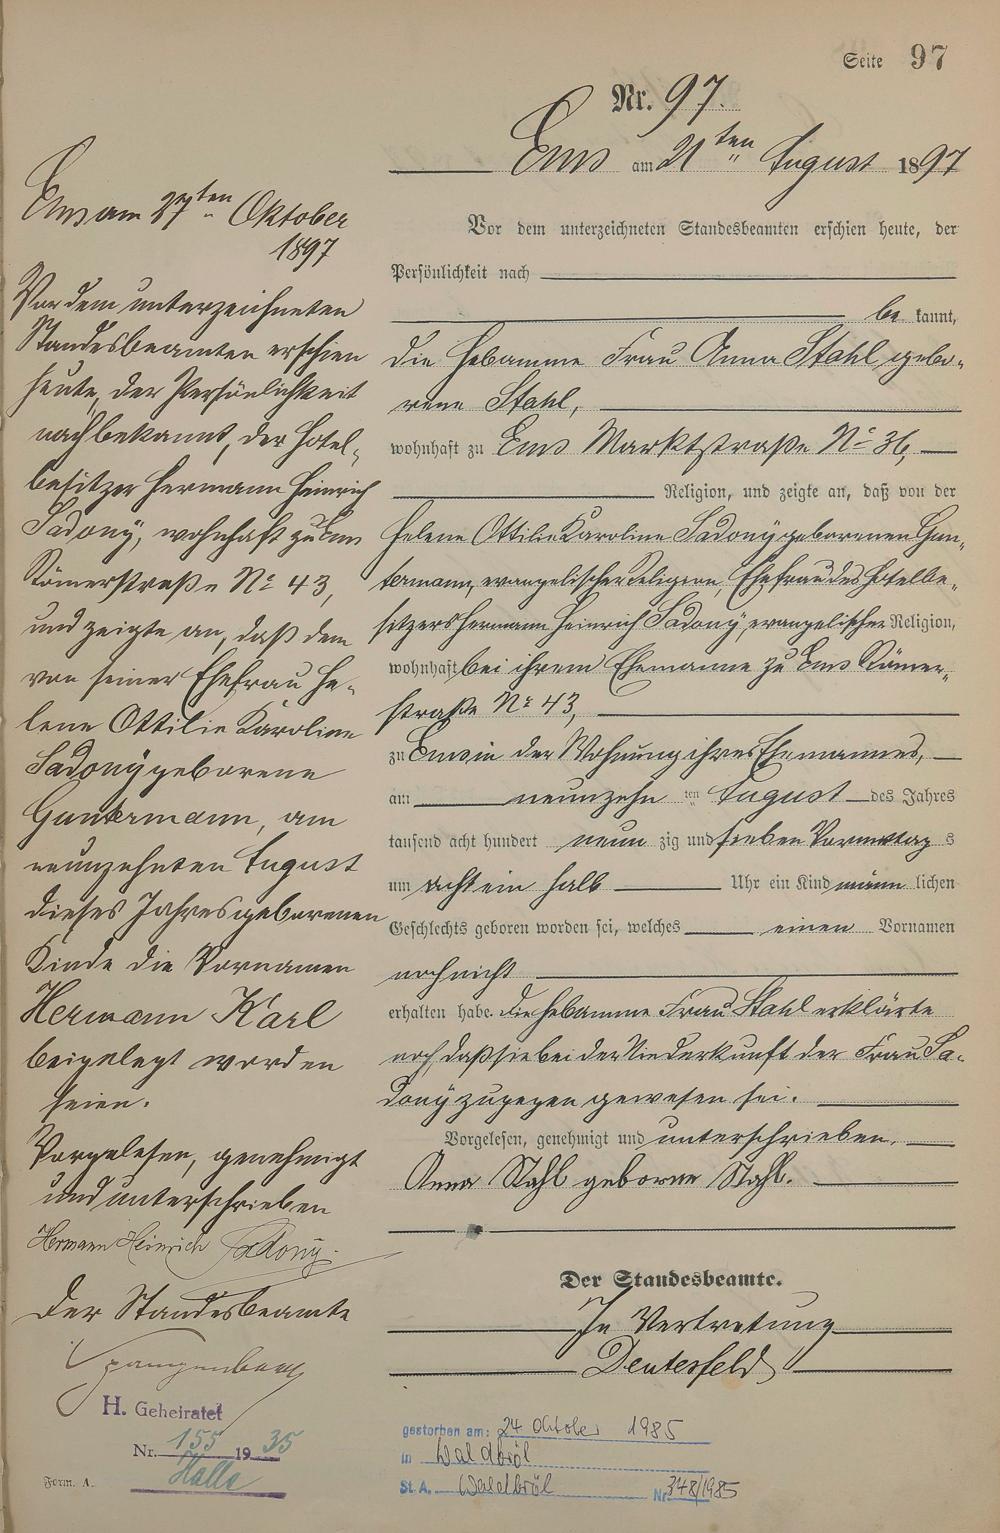 Seite 97
Nr. 97.
Ems am 21ten August 1897
Vor dem unterzeichneten Standesbeamten erschien heute, der
Persönlichkeit nach
be kannt,
die Hebamme Frau Anna Stahl gebo-
rene Stahl,
wohnhaft zu Ems Marktstraße No 36,
Religion, und zeigte an, daß von der
Helene Ottilie Karoline Sadony geborenen Gun-
termann, evangelischer Religion, Ehefrau des Hotelbe-
sitzers Hermann Heinrich Sadony, evangelischer Religion,
wohnhaft bei ihrem Ehemanne zu Ems Römer-
straße No 43,
zu Ems in der Wohnung ihres Ehemannes,
am neunzehn ten August des Jahres
tausend acht hundert neun zig und sieben Vormittag s
um acht ein halb Uhr ein Kind männ lichen
Geschlechts geboren worden sei, welches einen Vornamen
noch nicht
erhalten habe. Die Hebamme Frau Stahl erklärte
noch, daß sie bei der Niederkunft der Frau Sa-
dony zugegen gewesen sei.
Vorgelesen, genehmigt und unterschrieben.
Anna Stahl geborne Stahl.
Der Standesbeamte.
In Vertretung
Deutesfeld
Ems am 27ten Oktober
1897
Vor dem unterzeichneten
Standesbeamten erschien
heute, der Persönlichkeit
nach bekannt, der Hotel-
besitzer Hermann Heinrich
Sadony, wohnhaft zu Ems
Römerstraße No 43,
und zeigte an, daß dem
von seiner Ehefrau He-
lene Ottilie Karoline
Sadony geborene
Guntermann, am
neunzehnten August
dieses Jahres geborenen
Kinde die Vornamen
Hermann Karl
beigelegt worden
seien.
Vorgelesen, genehmigt
und unterschrieben
Hermann Heinrich Sadony.
Der Standesbeamte
Spangenberg
H. Geheiratet
Nr. 155 1935
Halle
Form. A.
gestorben am: 24 Oktober 1985
in Waldbröl
St.A. Waldbröl Nr. 348/1985